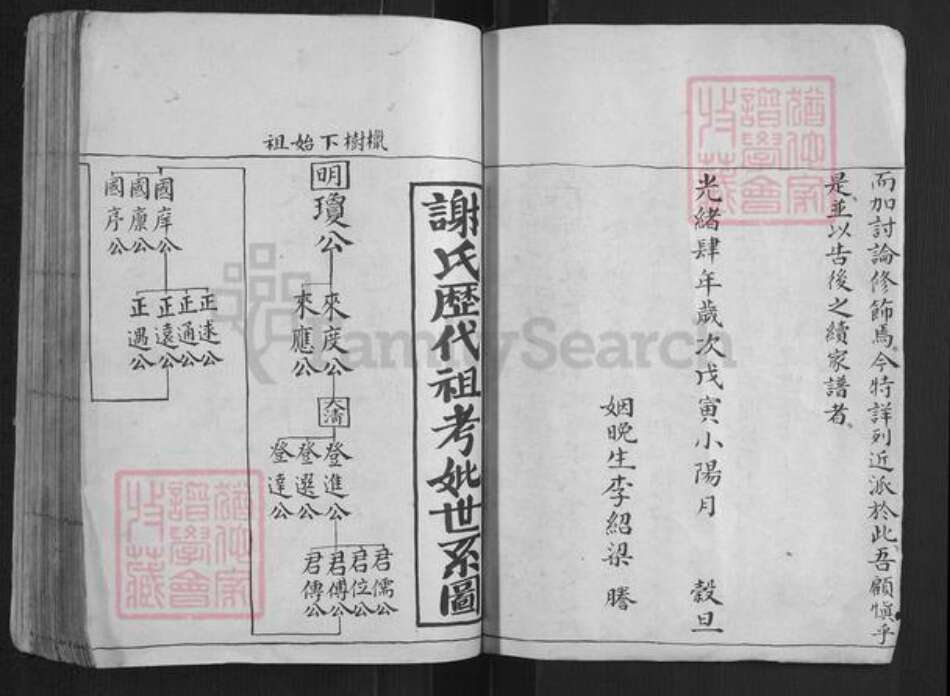 而加討論修飾焉今特詳列近派於此吾願慎乎
是並以告後之續家譜者
光緒肆年歲次戊寅小陽月 穀旦
姻晚生李紹梁 謄
謝氏歴代祖考妣世系圖
檓樹下始祖
明
瓊公
來度公
來應公
大清
登進公
登選公
登達公
君儒公
君位公
君傅公
君傳公
國庠公
國康公
國序公
正逑公
正通公
正遠公
正遇公
FamilySearch